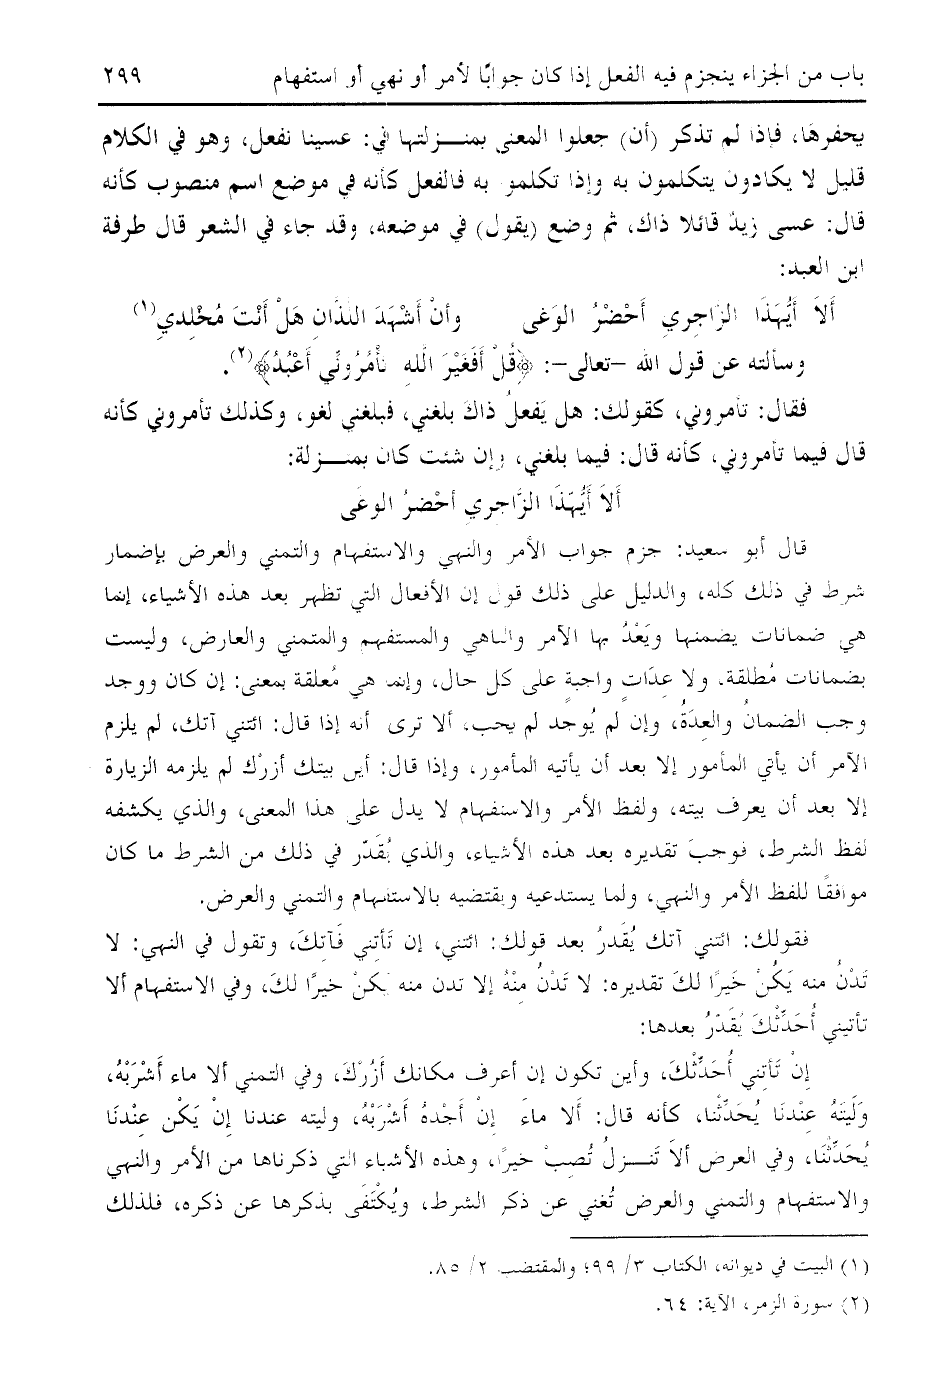 باب من الجزاء ينجزم فيه الفعل إذا كان جوابًا لأمر أو نهي أو استفهام ٢٩٩
يحفرها، فإذا لم تذكر (أن) جعلوا المعنى بمنـزلتها في: عسينا نفعل، وهو في الكلام
قليل لا يكادون يتكلمون به وإذا تكلمو به فالفعل كأنه في موضع اسم منصوب كأنه
قال: عسى زيدٌ قائلا ذاك، ثم وضع (يقول) في موضعه، وقد جاء في الشعر قال طرفة
ابن العبد:
أَلاَ أَيُّهَذَا الزَّاجِرِي أَحْضُرُ الوَغَى وأنْ أَشْهَدَ اللذَّانِ هَلْ أَنْتَ مُخْلِدِي(١)
وسألته عن قول الله –تعالى–: ﴿قُلْ أَفَغَيْرَ اللَّهِ تَأْمُرُونِّي أَعْبُدُ﴾(٢).
فقال: تأمروني، كقولك: هل يَفعلُ ذاكَ بلغني، فبلغني لغو، وكذلك تأمروني كأنه
قال فيما تأمروني، كأنه قال: فيما بلغني، وإن شئت كان بمنـزلة:
أَلاَ أَيُّهَذَا الزَّاجِرِي أحْضرُ الوغَى
قال أبو سعيد: جزم جواب الأمر والنهي والاستفهام والتمني والعرض بإضمار
شرط في ذلك كله، والدليل على ذلك قول إن الأفعال التي تظهر بعد هذه الأشياء، إنما
هي ضمانات يضمنها ويَعْدُ بها الآمر والناهي والمستفهم والمتمني والعارض، وليست
بضمانات مُطلقة. ولا عِدَاتٍ واجبةٍ على كل حال، وإنما هي مُعلقة بمعنى: إن كان ووجد
وجب الضمانُ والعِدَةُ، وإن لم يُوجد لم يجب، ألا ترى أنه إذا قال: ائتني آتك، لم يلزم
الآمر أن يأتي المأمور إلا بعد أن يأتيه المأمور، وإذا قال: أين بيتك أزرْك لم يلزمه الزيارة
إلا بعد أن يعرف بيته، ولفظ الأمر والاستفهام لا يدل على هذا المعنى، والذي يكشفه
لفظ الشرط، فوجبَ تقديره بعد هذه الأشياء، والذي يُقَدّر في ذلك من الشرط ما كان
موافقًا للفظ الأمر والنهي، ولما يستدعيه ويقتضيه بالاستفهام والتمني والعرض.
فقولك: ائتني آتك يُقَدرُ بعد قولك: ائتني، إن تَأتِني فَآتِكَ، وتقول في النهي: لا
تَدْنُ منه يَكُنْ خَيرًا لكَ تقديره: لا تَدْنُ مِنْهُ إلا تدن منه يكنْ خيرًا لكَ، وفي الاستفهام ألا
تأتيني أُحَدِّثْكَ يُقَدّرُ بعدها:
إنْ تَأتني أُحَدِّثْكَ، وأين تكون إن أعرف مكانك أَزُرْكَ، وفي التمني ألا ماء أَشْرَبْهُ،
وَلَيتَهُ عِنْدَنَا يُحَدِّثْنا، كأنه قال: أَلا ماءَ إنْ أجْدهُ أَشْرَبْهُ، وليته عندنا إنْ يَكْن عِنْدنَا
يُحَدِّثْنَا، وفي العرض ألاَ تَنـزلُ تُصِبْ خيرًا، وهذه الأشياء التي ذكرناها من الأمر والنهي
والاستفهام والتمني والعرض تُغني عن ذكر الشرط، ويُكْتَفَى بذكرها عن ذكره، فلذلك
(١) البيت في ديوانه، الكتاب ٣/ ٩٩؛ والمقتضب ٢/ ٨٥.
(٢) سورة الزمر، الآية: ٦٤.